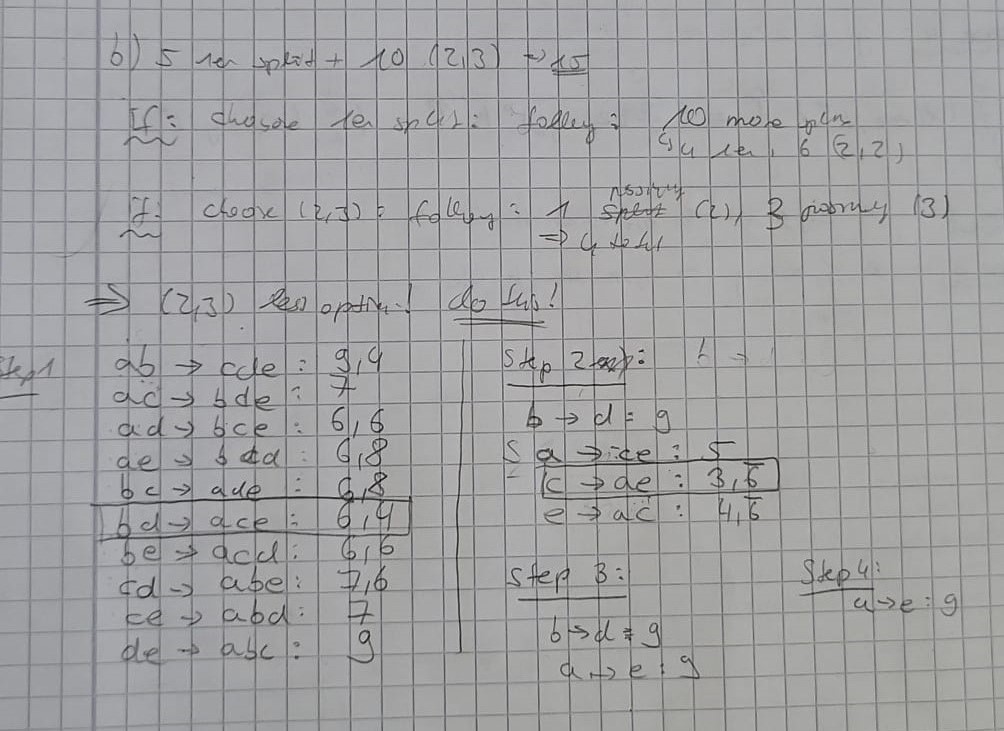 b) 5 1er split + 10 (2,3) → 15
If: choose 1er split: follow: 10 more
↳ 4 1er, 6 (2,2)
If: choose (2,3): follow: 1 (2), 3 (3)
⇒ 4 total
⇒ (2,3) less option! do this!
Step 1
ab → cde : 9,4
ac → bde : 7
ad → bce : 6,6
ae → bcd : 6,8
bc → ade : 6,8
bd → ace : 6,4
be → acd : 6,6
cd → abe : 7,6
ce → abd : 7
de → abc : 9
Step 2 :
b → d = 9
a → ce : 5
c → ae : 3,5
e → ac : 4,5
Step 3:
b → d = 9
a → e : 9
Step 4:
a → e : 9